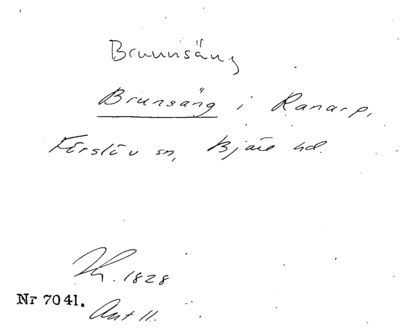 Brunnsäng
Brunsäng i Ranarp,
Förslöv sn, Bjäre hd.
1828
Nr 7041.
Ant 11.